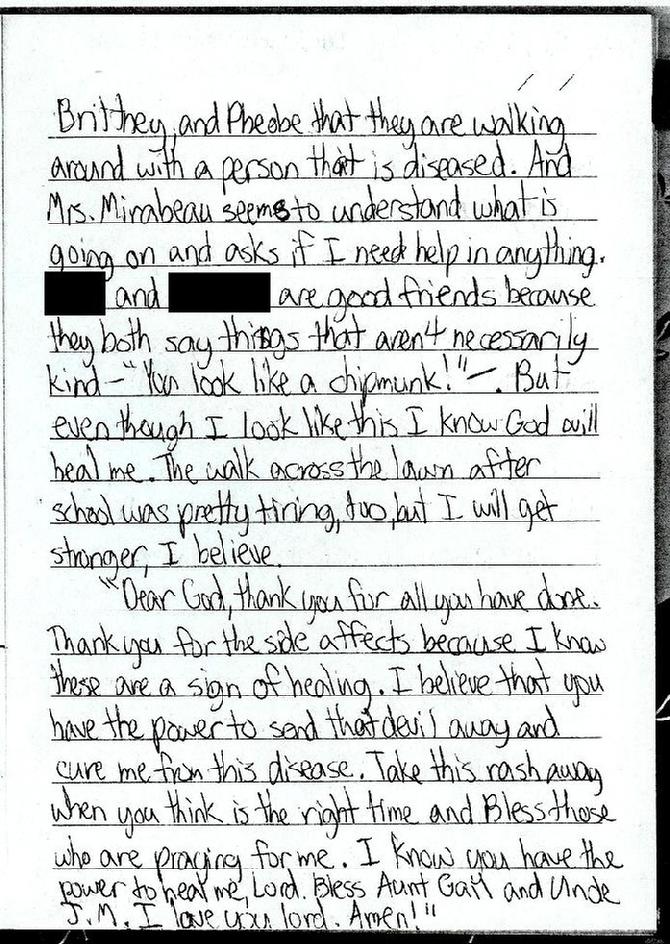 Britthey, and Pheobe that they are walking
around with a person that is diseased. And
Mrs. Mirabeau seems to understand what is
going on and asks if I need help in anything.
and are good friends because
they both say things that aren't necessarily
kind - "You look like a chipmunk!" -. But
even though I look like this I know God will
heal me. The walk across the lawn after
school was pretty tiring, too, but I will get
stronger, I believe.
"Dear God, thank you for all you have done.
Thank you for the side affects because I know
these are a sign of healing. I believe that you
have the power to send that devil away and
cure me from this disease. Take this rash away
when you think is the right time and Bless those
who are praying for me. I know you have the
power to heal me, Lord. Bless Aunt Gail and Uncle
J.M. I love you lord. Amen!"